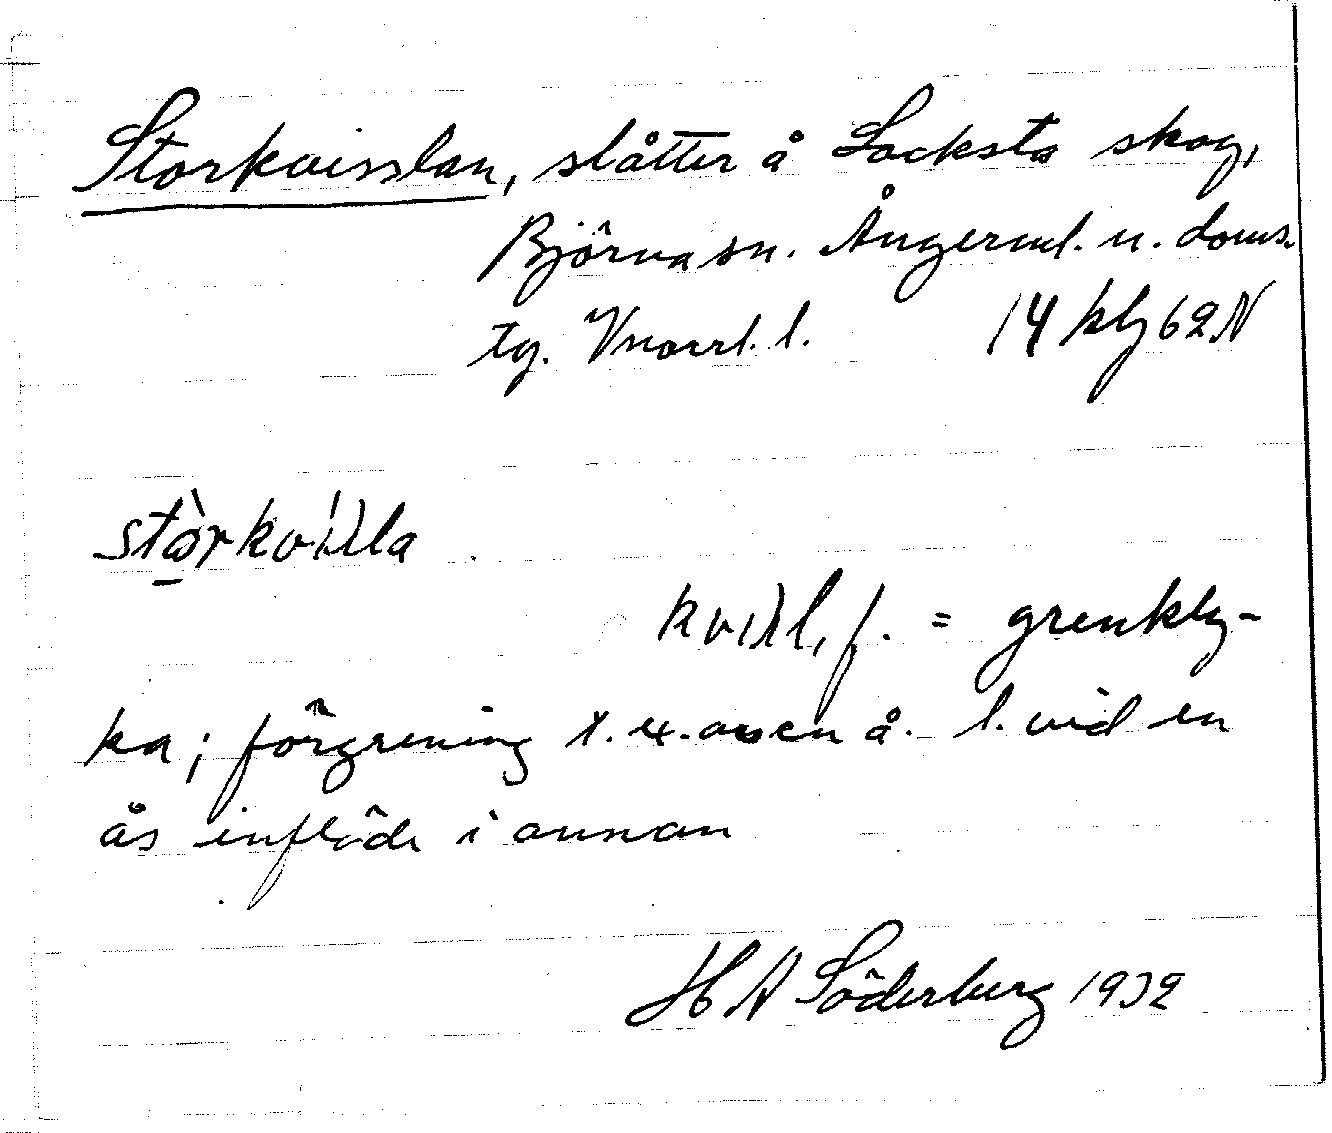 Storkvisslan, slåtter å Locksta skog,
Björna sn. Ångerml. n. doms.
tg. Vnorrl. l. 14 klg 62 N
kvisl, f. = grenkly-
ka; förgrening t. ex. av en å. l. vid en
ås inflöde i annan
H A Söderberg 1932